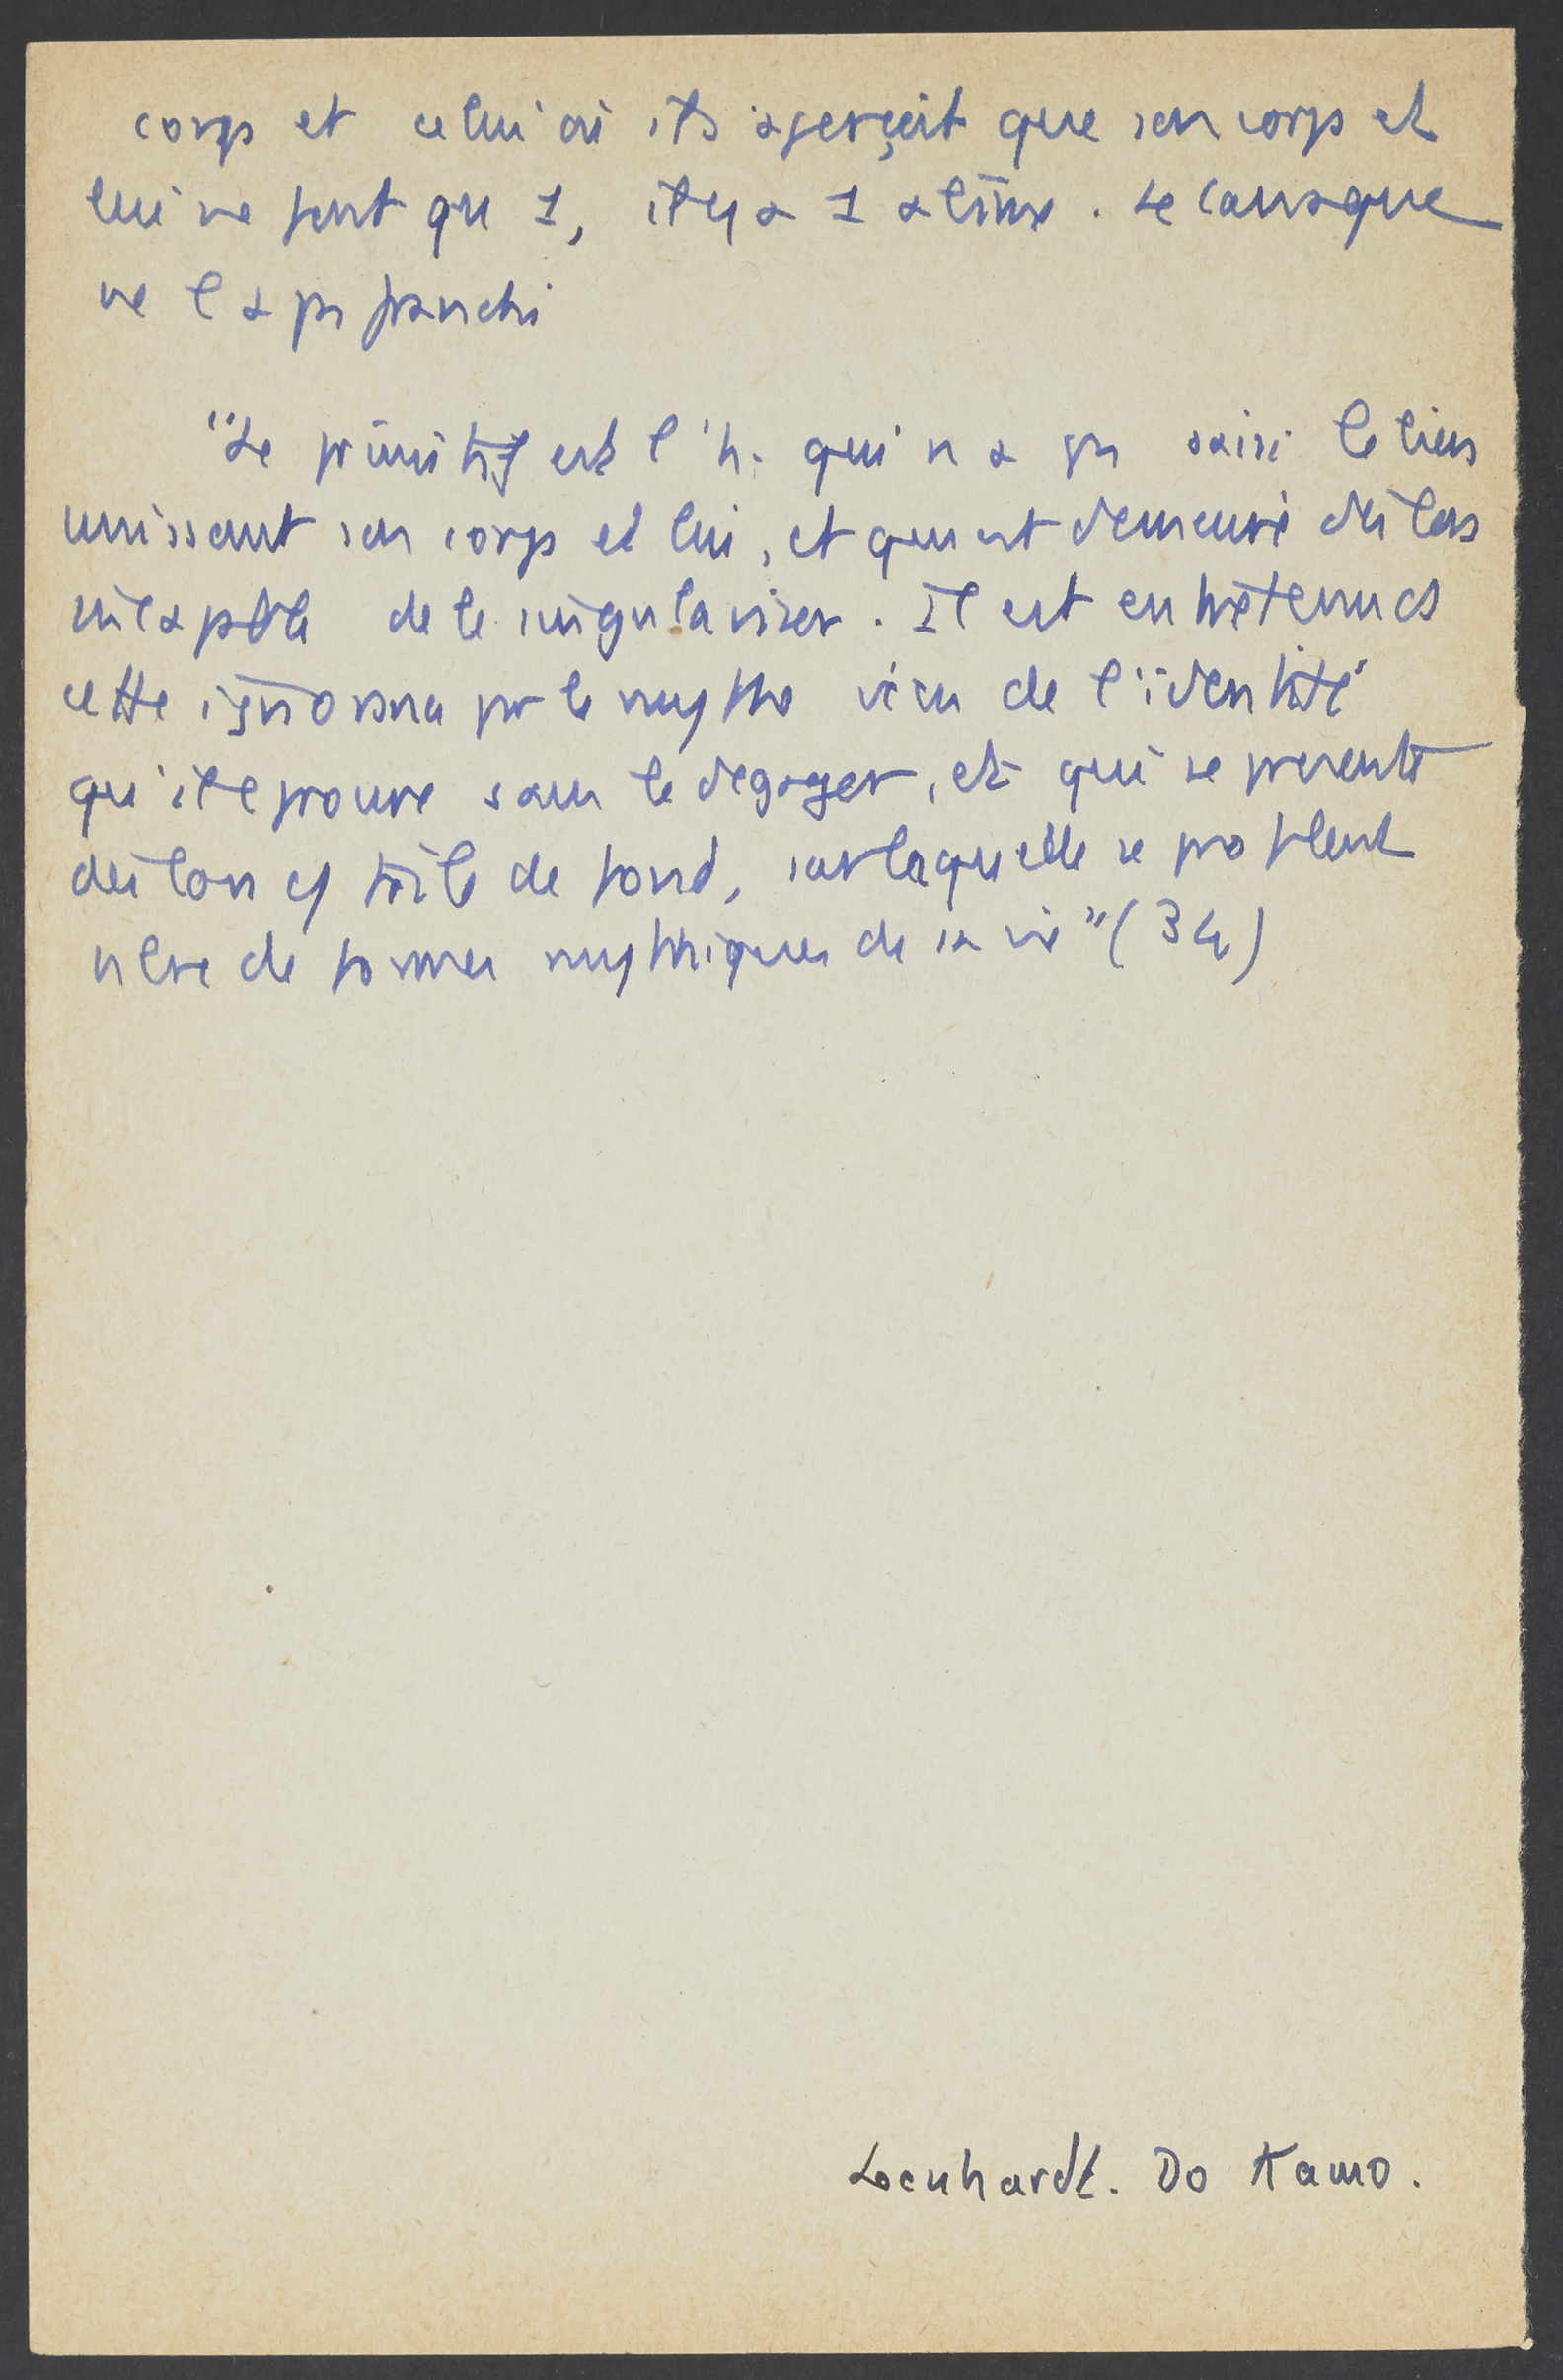 corps et celui où il s'aperçoit que son corps et
lui ne font qu 1, il y a 1 abîme. Le Canaque
ne l a ps franchi
"Le primitif est l'h. qui n a ps saisi le lien
unissant son corps et lui, et qui est demeuré dès lors
incapble de le singulariser. Il est entretenu ds
cette ignorance pr le mythe vécu de l'identité
qu'il eprouve sans le degager, et qui se presente
dès lors toile de fond, sur laquelle se profilent
de formes mythiques de sa vie" (34)
Leenhardt. Do Kamo.